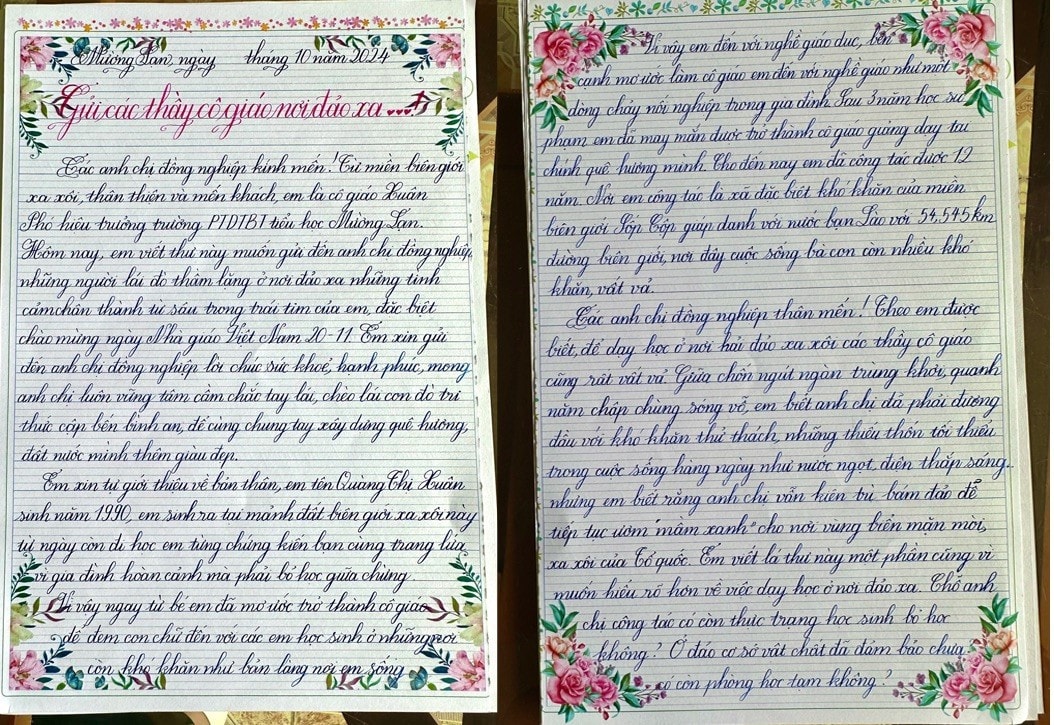 Mường Lạn, ngày     tháng 10 năm 2024
Gửi các thầy cô giáo nơi đảo xa ...!
Các anh chị đồng nghiệp kính mến! Từ miền biên giới
xa xôi, thân thiện và mến khách, em là cô giáo Xuân
Phó hiệu trưởng trường PTDTBT tiểu học Mường Lạn.
Hôm nay, em viết thư này muốn gửi đến anh chị đồng nghiệp,
những người lái đò thầm lặng ở nơi đảo xa những tình
cảm chân thành từ sâu trong trái tim của em, đặc biệt
chào mừng ngày Nhà giáo Việt Nam 20-11. Em xin gửi
đến anh chị đồng nghiệp lời chúc sức khoẻ, hạnh phúc, mong
anh chị luôn vững tâm cầm chắc tay lái, chèo lái con đò tri
thức cập bến bình an, để cùng chung tay xây dựng quê hương,
đất nước mình thêm giàu đẹp.
Em xin tự giới thiệu về bản thân, em tên Quàng Thị Xuân
sinh năm 1990, em sinh ra tại mảnh đất biên giới xa xôi này
từ ngày còn đi học em từng chứng kiến bạn cùng trang lứa
vì gia đình hoàn cảnh mà phải bỏ học giữa chừng.
Vì vậy ngay từ bé em đã mơ ước trở thành cô giáo
để đem con chữ đến với các em học sinh ở những nơi
còn khó khăn như bản làng nơi em sống
Vì vậy em đến với nghề giáo dục, bên
cạnh mơ ước làm cô giáo em đến với nghề giáo như một
dòng chảy nối nghiệp trong gia đình. Sau 3 năm học sư
phạm em đã may mắn được trở thành cô giáo giảng dạy tại
chính quê hương mình. Cho đến nay em đã công tác được 12
năm. Nơi em công tác là xã đặc biệt khó khăn của miền
biên giới Sốp Cộp giáp danh với nước bạn Lào với 54,545 km
đường biên giới, nơi đây cuộc sống bà con còn nhiều khó
khăn, vất vả.
Các anh chị đồng nghiệp thân mến! Theo em được
biết, để dạy học ở nơi hải đảo xa xôi các thầy cô giáo
cũng rất vất vả. Giữa chốn ngút ngàn trùng khơi, quanh
năm chập chùng sóng vỗ, em biết anh chị đã phải đương
đầu với khó khăn thử thách, những thiếu thốn tối thiểu
trong cuộc sống hàng ngày như nước ngọt, điện thắp sáng...
nhưng em biết rằng anh chị vẫn kiên trì bám đảo để
tiếp tục ươm "mầm xanh" cho nơi vùng biển mặn mòi,
xa xôi của Tổ quốc. Em viết lá thư này một phần cũng vì
muốn hiểu rõ hơn về việc dạy học ở nơi đảo xa. Chỗ anh
chị công tác có còn thực trạng học sinh bỏ học
không? Ở đảo cơ sở vật chất đã đảm bảo chưa
có còn phòng học tạm không?